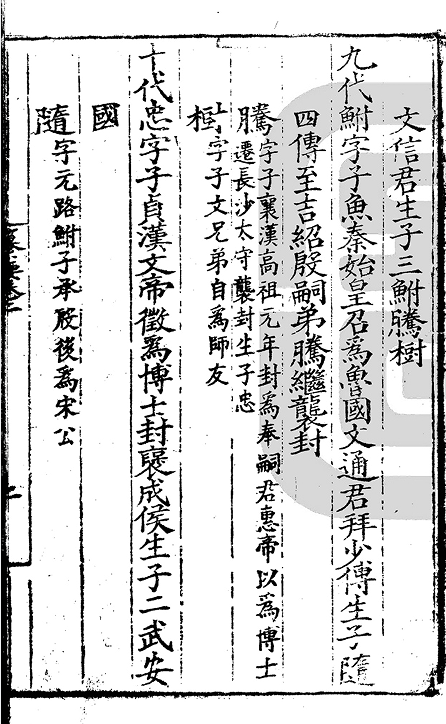 文信君生子三鮒騰樹
九代鮒字子魚秦始皇召為魯國文通君拜少傅生子隨
四傳至吉紹殷嗣弟騰繼襲封
騰字子襄漢高祖元年封為奉嗣君惠帝以為博士
遷長沙太守襲封生子忠
樹字子文兄弟自為師友
十代忠字子貞漢文帝徵為博士封褒成侯生子二武安
國
隨字元路鮒子承殷後為宋公